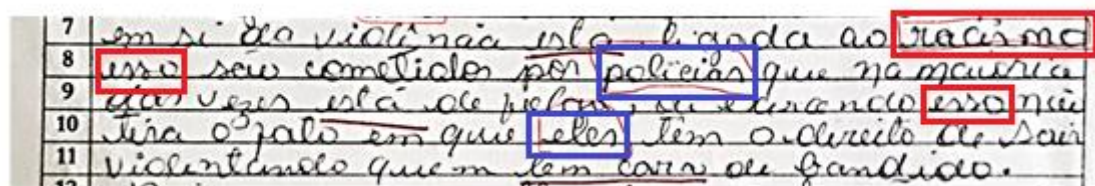 7 em si da violência está ligada ao racismo
8 esso são cometidos por policias que na mauoria
9 das vezes está de folam, se educando esso não
10 tira o fato em que eles têm o direito de sair
11 violentando quem tem cara de bandido.
12